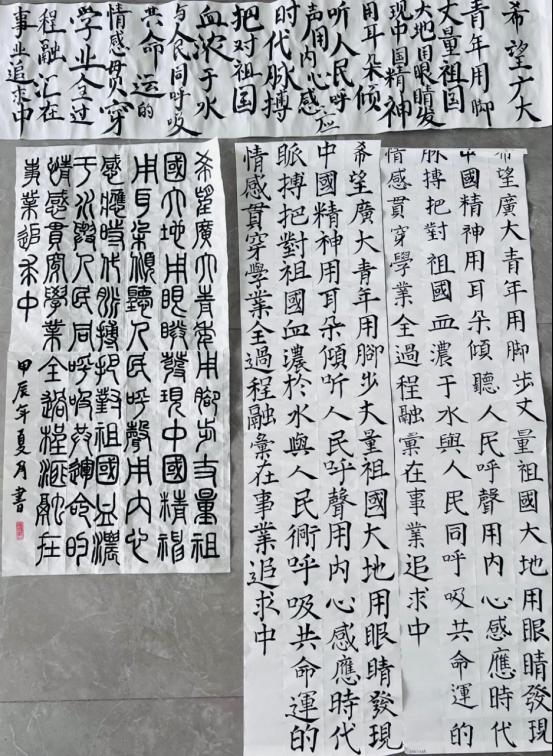 希望广大
青年用脚
丈量祖国
大地用眼睛发
现中国精神
用耳朵倾
听人民呼
声用内心感应
时代脉搏
把对祖国
血浓于水
与人民同呼吸
共命运的
情感贯穿
学业全过
程融汇在
事业追求中
希望廣大青年用脚步丈量祖國大地用眼睛發現
中國精神用耳朵傾聽人民呼聲用内心感應時代
脉搏把對祖國血濃于水與人民同呼吸共命運的
情感貫穿學業全過程融彙在事業追求中
希望廣大青年用腳步丈量祖國大地用眼睛發現
中國精神用耳朵傾听人民呼聲用内心感應時代
脈搏把對祖國血濃於水與人民衕呼吸共命運的
情感貫穿學業全過程融彙在事業追求中
希望廣大青年用脚步丈量祖
國大地用眼睛發現中國精神
用耳朵傾聽人民呼聲用内心
感應時代脈搏把對祖國血濃
于水與人民同呼吸共運命的
情感貫穿學業全過程滙融在
事業追求中
甲辰年夏月書